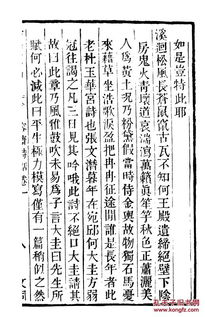 如是豈特此耶
溪迴松風長蒼鼠竄古瓦不知何王殿遺締絕壁下陰
房鬼火青壞道哀湍瀉萬籟眞笙竽秋色正蕭灑美
人爲黃土況乃粉黛假當時侍金輿故物獨石馬憂
來藉草坐浩歌淚盈把冉冉征途間誰是長年者此
老杜玉華宮詩也張文潛暮年在宛邱何大圭方弱
冠往謁之凡三日見其吟哦此詩不絕口大圭請其
故曰此章乃風雅鼓吹未易爲子言大圭曰先生所
賦何必減此曰平生極力模寫僅有一篇稍似之然